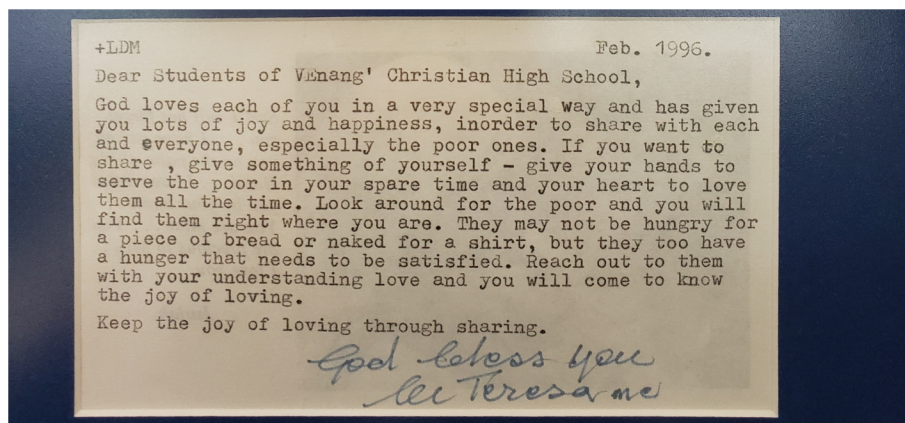 +LDM Feb. 1996.
Dear Students of VEnang' Christian High School,
God loves each of you in a very special way and has given
you lots of joy and happiness, inorder to share with each
and everyone, especially the poor ones. If you want to
share , give something of yourself - give your hands to
serve the poor in your spare time and your heart to love
them all the time. Look around for the poor and you will
find them right where you are. They may not be hungry for
a piece of bread or naked for a shirt, but they too have
a hunger that needs to be satisfied. Reach out to them
with your understanding love and you will come to know
the joy of loving.
Keep the joy of loving through sharing.
God bless you
M Teresa mc